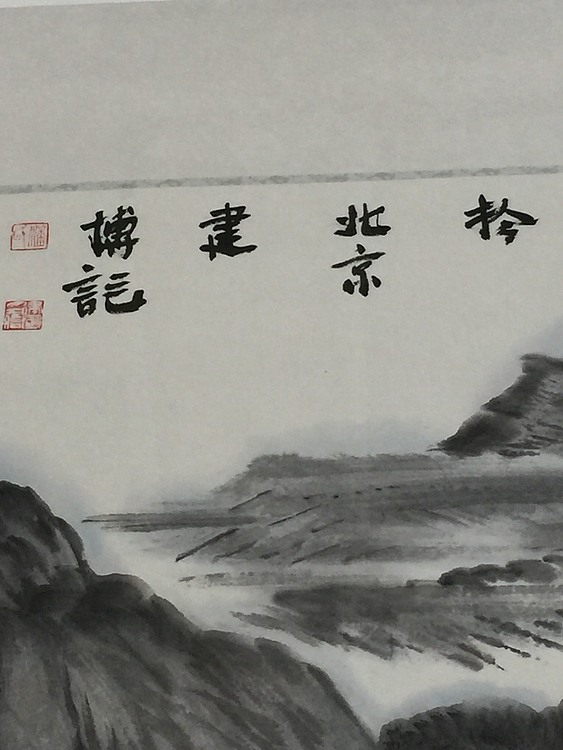 扵
北京
建
博記